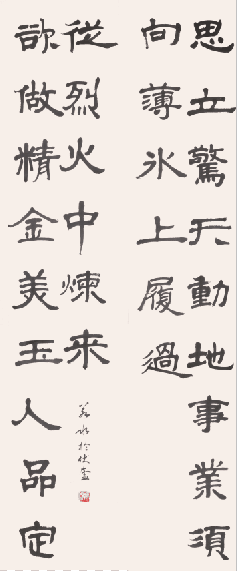 思立驚天動地事業須
向薄氷上履過
欲做精金美玉人品定
從烈火中煉来